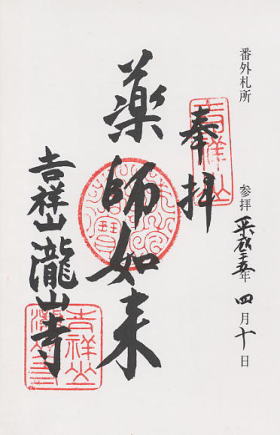 番外札所
参拝 平成二十五年 四月十日
奉拝
吉祥山
薬師如来
吉祥山 瀧山寺